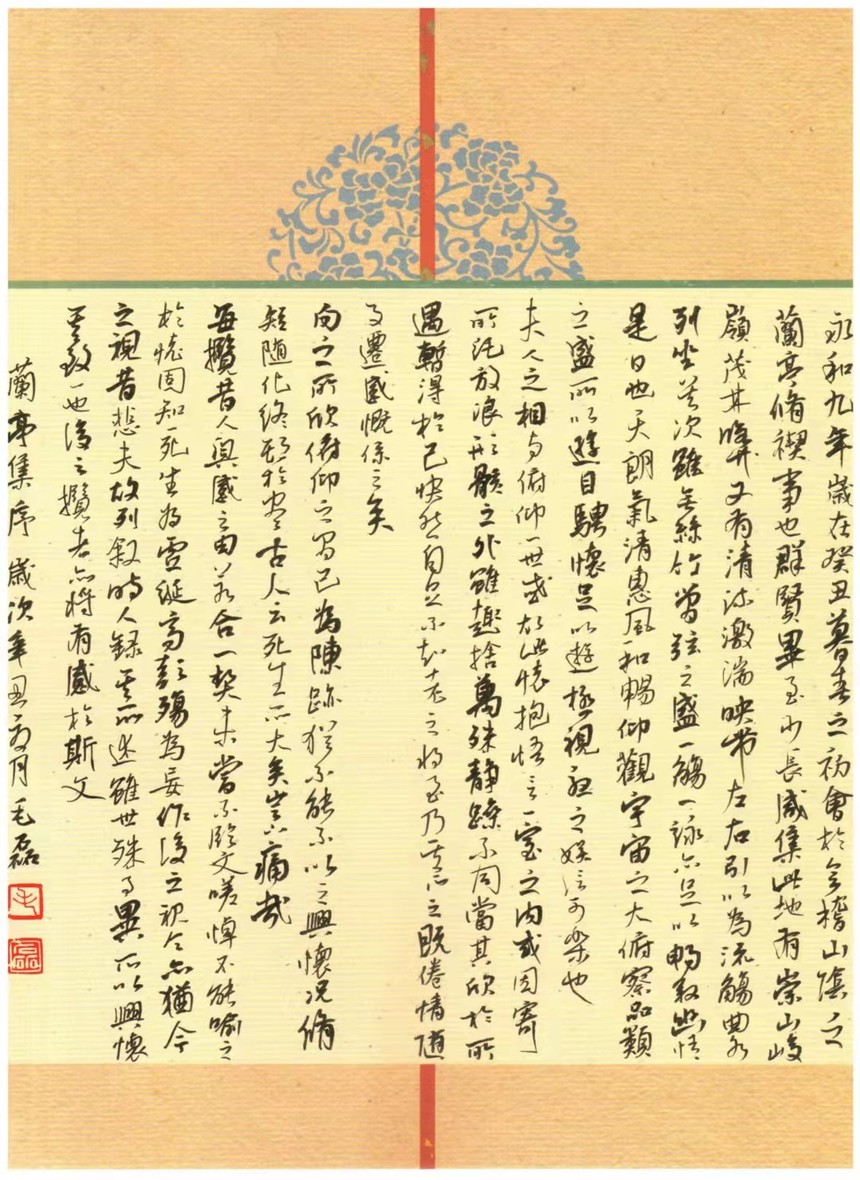 永和九年歲在癸丑暮春之初會於會稽山陰之
蘭亭脩禊事也群賢畢至少長咸集此地有崇山峻
嶺茂林脩竹又有清流激湍映帶左右引以為流觴曲水
列坐其次雖無絲竹管弦之盛一觴一詠亦足以暢敘幽情
是日也天朗氣清惠風和暢仰觀宇宙之大俯察品類
之盛所以遊目騁懷足以遊極視聽之娛信可樂也
夫人之相與俯仰一世或取諸懷抱悟言一室之內或因寄
所託放浪形骸之外雖趣捨萬殊靜躁不同當其欣於所
遇暫得於己快然自足不知老之將至及其所之既倦情隨
事遷感慨係之矣
向之所欣俯仰之間已為陳跡猶不能不以之興懷況脩
短隨化終期於盡古人云死生亦大矣豈不痛哉
每攬昔人興感之由若合一契未嘗不臨文嗟悼不能喻之
於懷固知一死生為虛誕齊彭殤為妄作後之視今亦猶今
之視昔悲夫故列敘時人錄其所述雖世殊事異所以興懷
其致一也後之攬者亦將有感於斯文
蘭亭集序 歲次辛丑月毛磊
毛
磊